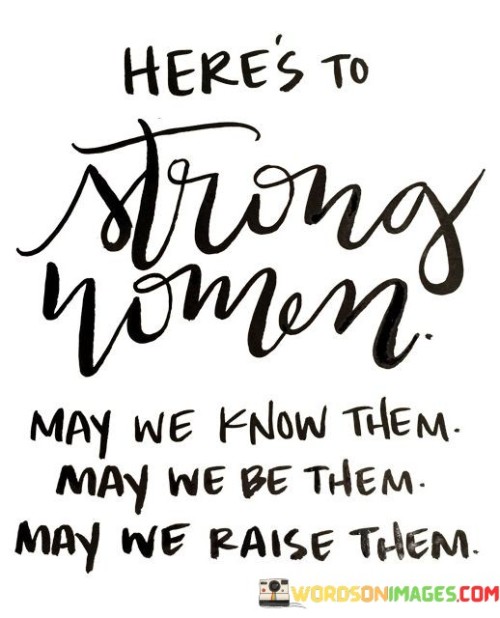 HERE'S TO
strong
women.
MAY WE KNOW THEM.
MAY WE BE THEM.
MAY WE RAISE THEM.
WORDSONIMAGES.COM